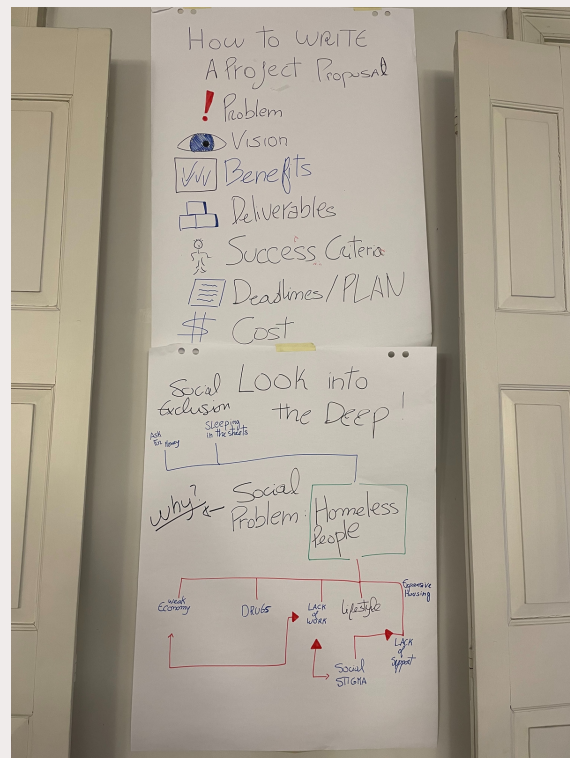 How to WRITE
A Project Proposal
Problem
Vision
Benefits
Deliverables
Success Critera
Deadlines/PLAN
$ Cost
Social
Exclusion
LOOK into
the Deep!
Ask
For Money
Sleeping
in the streets
Why?
Social
Problem:
Homeless
People
Weak
Economy
DRUGS
LACK
of
WORK
Lifestyle
Expensive
Housing
LACK
of
Support
Social
STIGMA